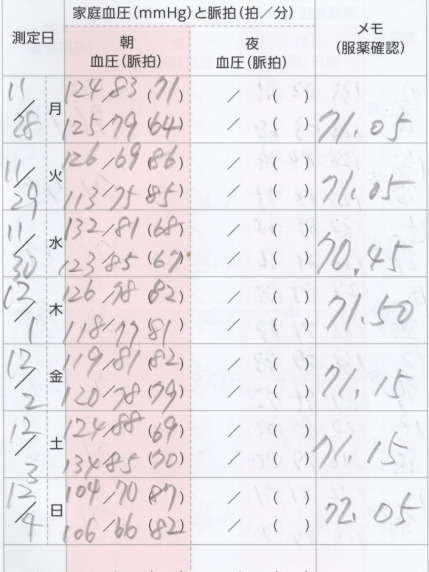 家庭血圧(mmHg)と脈拍(拍／分)
測定日 朝 血圧(脈拍) 夜 血圧(脈拍) メモ (服薬確認)
11/28 月 124/83 (71) ／ ( )
125/79 (64) ／ ( ) 71.05
11/29 火 126/69 (86) ／ ( )
113/75 (85) ／ ( ) 71.05
11/30 水 132/81 (68) ／ ( )
123/85 (67) ／ ( ) 70.45
12/1 木 126/78 (82) ／ ( )
118/77 (81) ／ ( ) 71.50
12/2 金 119/81 (82) ／ ( )
120/78 (79) ／ ( ) 71.15
12/3 土 124/88 (69) ／ ( )
134/85 (70) ／ ( ) 71.15
12/4 日 104/70 (87) ／ ( )
106/66 (82) ／ ( ) 72.05